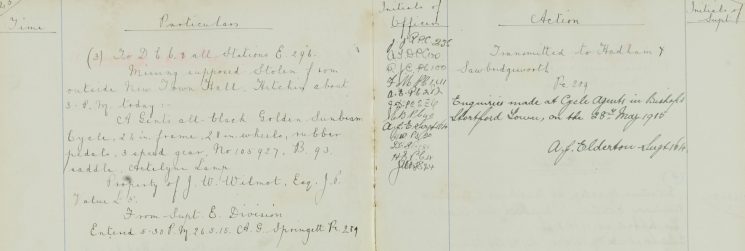 Time
Particulars
Initials of
Officer
Action
Initials of
Supt
(3) To D E & B all Stations E. 296.
Missing supposed Stolen from
outside New Town Hall, Hitchin about
3. P.M today:-
A Gents all-Black Golden Sunbeam
Cycle, 26 in frame, 28 in wheels, rubber
pedals, 3 speed gear, No 105927, B. 93,
saddle, Acetylene Lamp
Property of J. W. Widmot, Esq. J.P.
Value £5.
From Supt E. Division
Entered 5-30 P.M 26.5.15. A. G. Springett Pc 289
Transmitted to Hadham &
Sawbridgeworth.
Pc 289
Enquiries made at Cycle Agents in Bishop's
Stortford Town, on the 28th May 1915
A. J. Elderton Sergt 164.